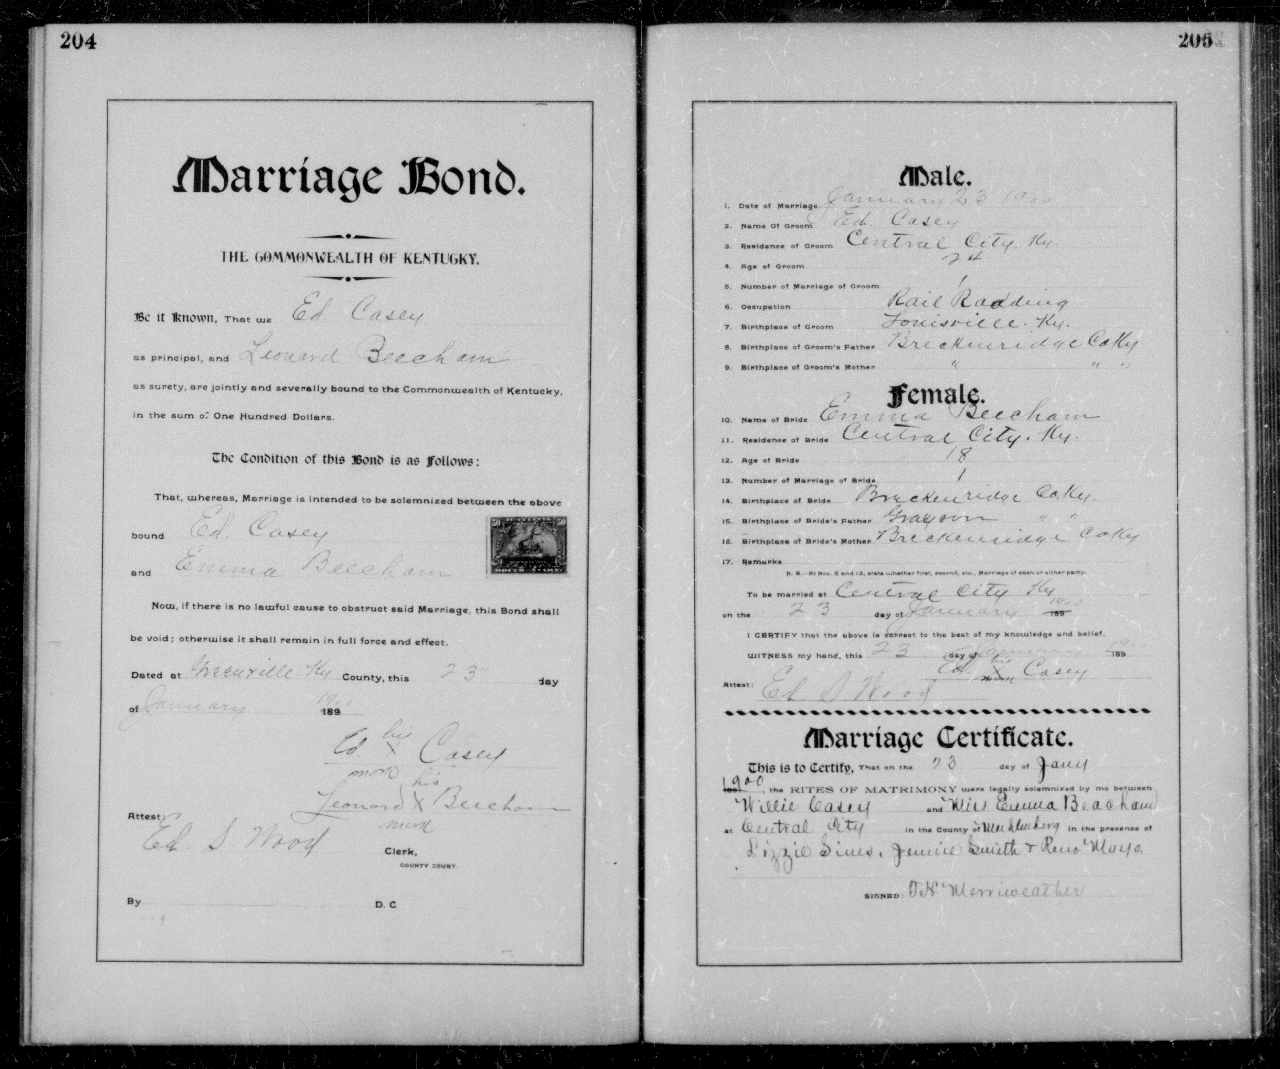 204
Marriage Bond.
THE COMMONWEALTH OF KENTUCKY.
Be it Known, That we Ed Casey
as principal, and Leonard Beecham
as surety, are jointly and severally bound to the Commonwealth of Kentucky,
in the sum of One Hundred Dollars.
The Condition of this Bond is as Follows:
That, whereas, Marriage is intended to be solemnized between the above
bound Ed. Casey
and Emma Beecham
Now, if there is no lawful cause to obstruct said Marriage, this Bond shall
be void; otherwise it shall remain in full force and effect.
Dated at Greenville Ky County, this 23 day
of January 1900 189
Ed his X Casey
mark
Leonard his X Beecham
mark
Attest:
Ed S. Wood
Clerk,
COUNTY COURT.
By D. C
205
Male.
1. Date of Marriage January 23 1900
2. Name Of Groom Ed. Casey
3. Residence of Groom Central City. Ky.
4. Age of Groom 24
5. Number of Marriage of Groom 1
6. Occupation Rail Roading
7. Birthplace of Groom Louisville. Ky.
8. Birthplace of Groom's Father Breckenridge Co Ky
9. Birthplace of Groom's Mother " " "
Female.
10. Name of Bride Emma Beecham
11. Residence of Bride Central City. Ky.
12. Age of Bride 18
13. Number of Marriage of Bride 1
14. Birthplace of Bride Breckenridge Co. Ky.
15. Birthplace of Bride's Father Grayson " "
16. Birthplace of Bride's Mother Breckenridge Co Ky
17. Remarks
N. B.—At Nos. 5 and 13, state whether first, second, etc., Marriage of each or either party.
To be married at Central City Ky
on the 23 day of January 1900 189
I CERTIFY that the above is correct to the best of my knowledge and belief.
WITNESS my hand, this 23 day of January 1900 189
Ed. his X Casey
mark
Attest: Ed S Wood
Marriage Certificate.
This is to Certify, That on the 23 day of Jany
1900, the RITES OF MATRIMONY were legally solemnized by me between
Willie Casey and Miss Emma Beacham
at Central City in the County of Muhlenberg in the presence of
Lizzie Sines, Jennie Smith & Reno Mayo.
SIGNED: T.H. Merriweather